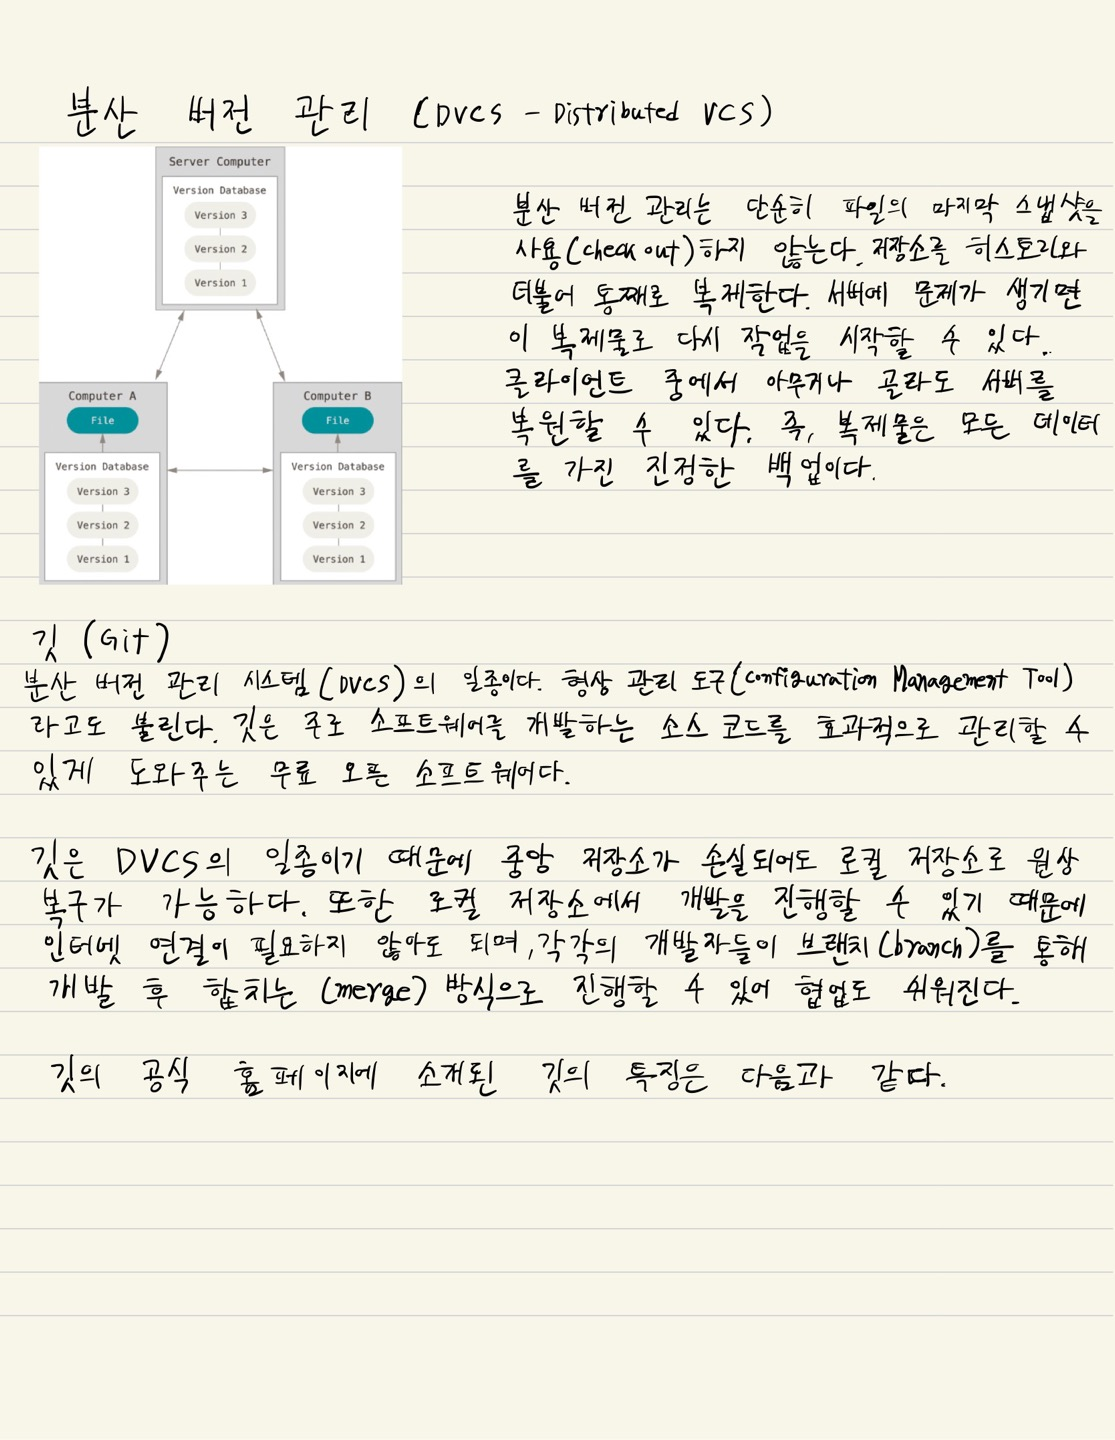 분산 버전 관리 (DVCS - Distributed VCS)
Server Computer
Version Database
Version 3
Version 2
Version 1
Computer A
File
Version Database
Version 3
Version 2
Version 1
Computer B
File
Version Database
Version 3
Version 2
Version 1
분산 버전 관리는 단순히 파일의 마지막 스냅샷을
사용(check out)하지 않는다. 저장소를 히스토리와
더불어 통째로 복제한다. 서버에 문제가 생기면
이 복제물로 다시 작업을 시작할 수 있다.
클라이언트 중에서 아무거나 골라도 서버를
복원할 수 있다. 즉, 복제물은 모든 데이터
를 가진 진정한 백업이다.
깃 (Git)
분산 버전 관리 시스템(DVCS)의 일종이다. 형상 관리 도구(Configuration Management Tool)
라고도 불린다. 깃은 주로 소프트웨어를 개발하는 소스 코드를 효과적으로 관리할 수
있게 도와주는 무료 오픈 소프트웨어다.
깃은 DVCS의 일종이기 때문에 중앙 저장소가 손실되어도 로컬 저장소로 원상
복구가 가능하다. 또한 로컬 저장소에서 개발을 진행할 수 있기 때문에
인터넷 연결이 필요하지 않아도 되며, 각각의 개발자들이 브랜치(branch)를 통해
개발 후 합치는 (merge) 방식으로 진행할 수 있어 협업도 쉬워진다.
깃의 공식 홈페이지에 소개된 깃의 특징은 다음과 같다.